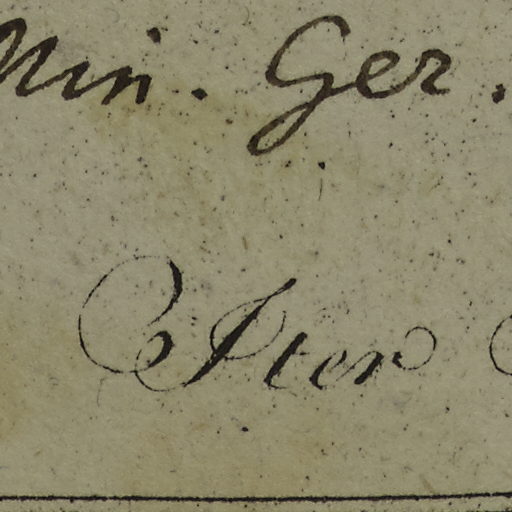 Min. Ger.
Iter